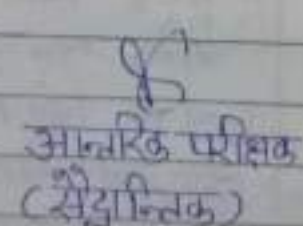 आन्तरिक परीक्षक
(सैद्धान्तिक)